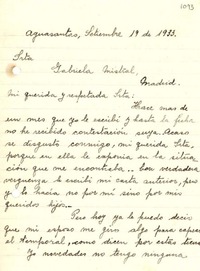 1093
Aguasantas, Setiembre 19 de 1933.
Srta
Gabriela Mistral,
Madrid.
Mi querida y respetada Srta:
Hace mas de
un mes que yo le escribí y hasta la fecha
no he recibido contestación suya. Acaso
se disgustó conmigo, mi querida Srta,
porque en ella le exponía en la situa
ción que me encontraba.. Con verdadera
vergüenza le escribí mi carta anterior, pero
yo lo hacía no por mi sino por mis
queridos hijos...
Pero hoy ya le puedo decir
que mi esposo me giro algo para capear
el temporal, como dicen por estas tierras
Yo novedades no tengo ninguna